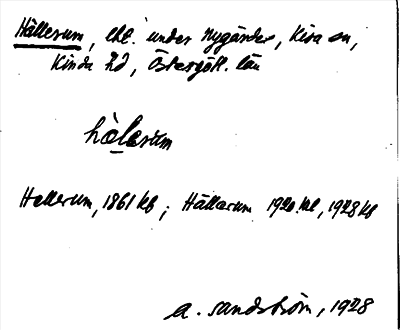 Hällerum, lht. under Nygärdes, Kisa sn,
Kinda hd, Östergötl. län
hälarum
Hellerum, 1861 kb ; Hällarum 1920. ml, 1928 kb
A. Sandström, 1928